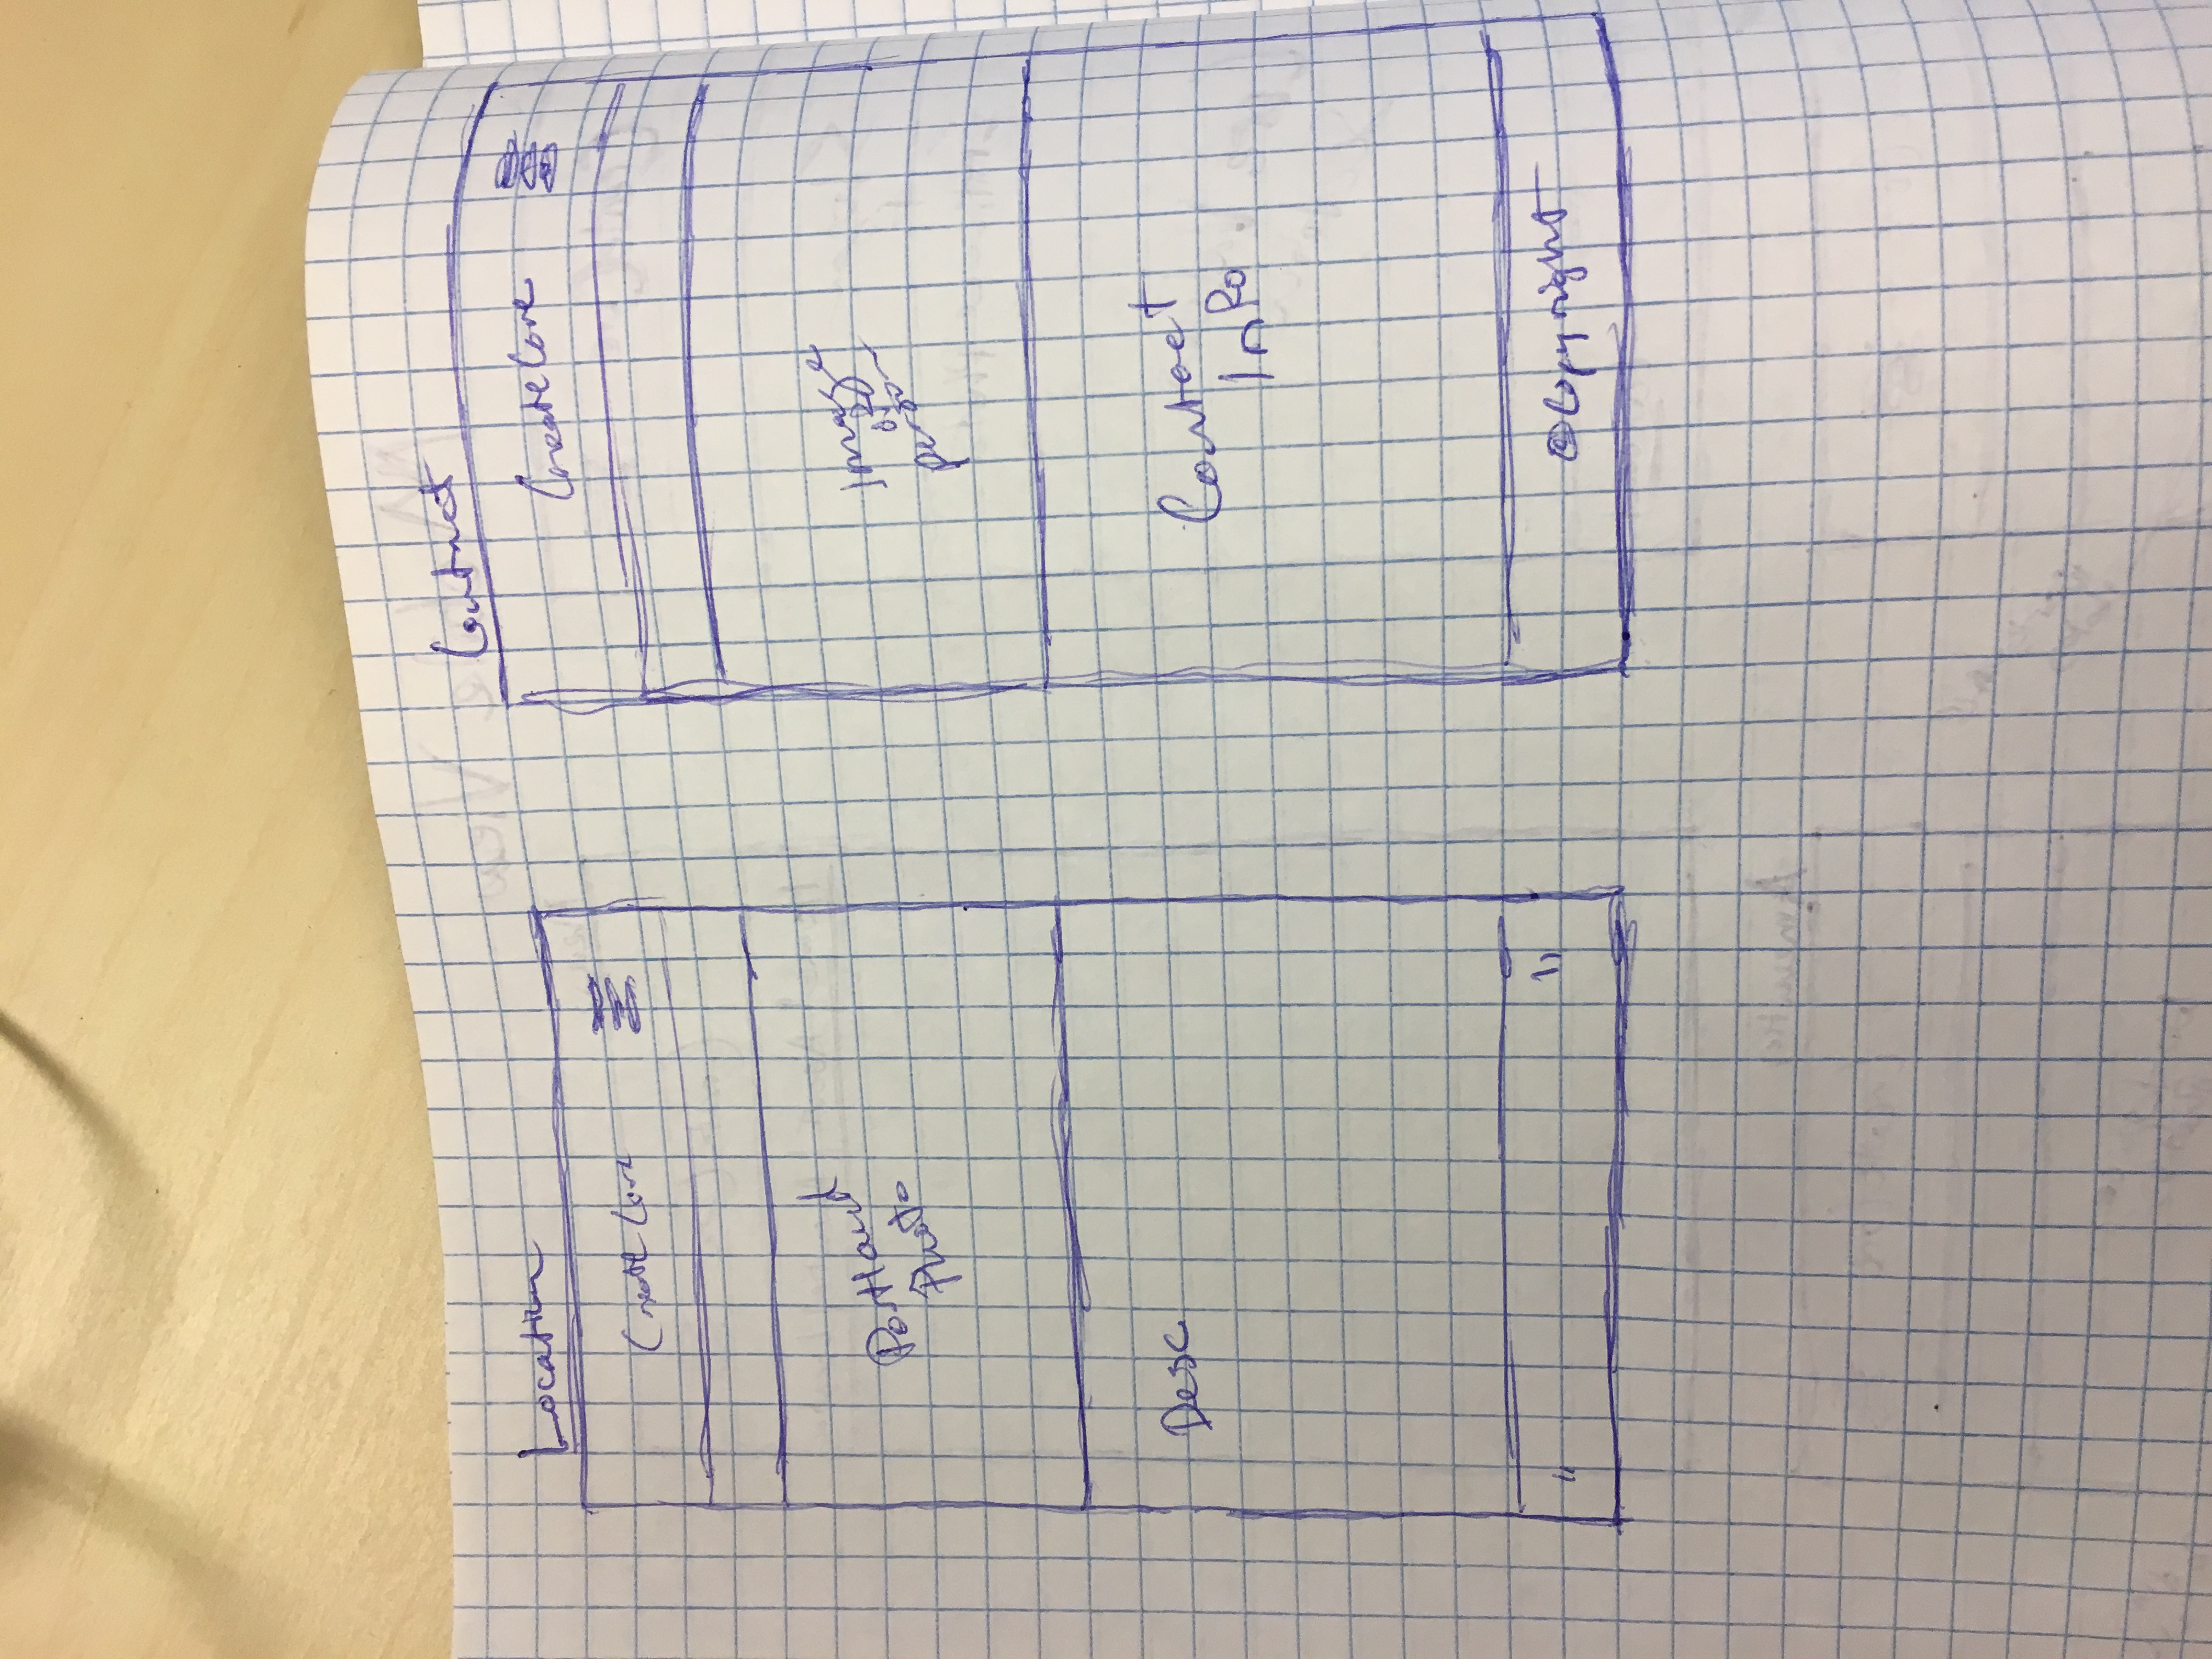 Location
CreateCore
Portland
Photo
Desc
"
"
Contact
CreateCore
Image
of
person
Contact
Info
© Copyright